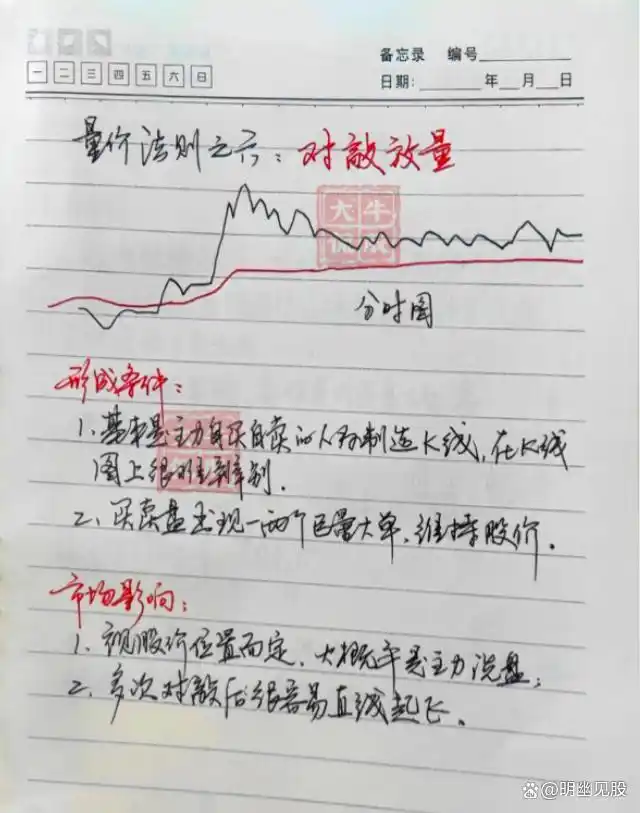 备忘录 编号
一 二 三 四 五 六 日
日期: 年 月 日
量价法则之六：对敲放量
大牛
分时图
形成条件：
1、基本是主力自买自卖的人为制造K线，在K线
图上很难辨别．
2、买卖盘出现一两个巨量大单，维持股价．
市场影响：
1、视股价位置而定，大概率是主力洗盘；
2、多次对敲后很容易直线起飞．
百度 @明幽见股